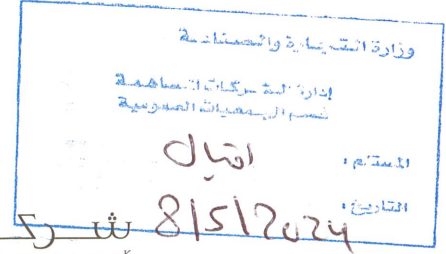 وزارة التجارة والصناعة
إدارة الشركات المساهمة
قسم الجمعيات العمومية
المستلم : اقبال
التاريخ : 8/5/2024